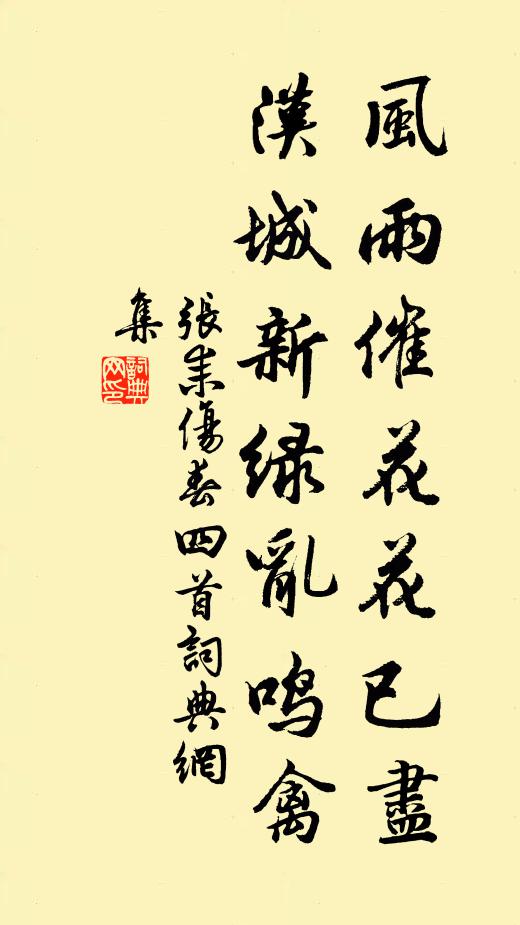 風雨催花花已盡
漢城新绿亂鳴禽
張耒傷春四首詞典網
集
詞典网印